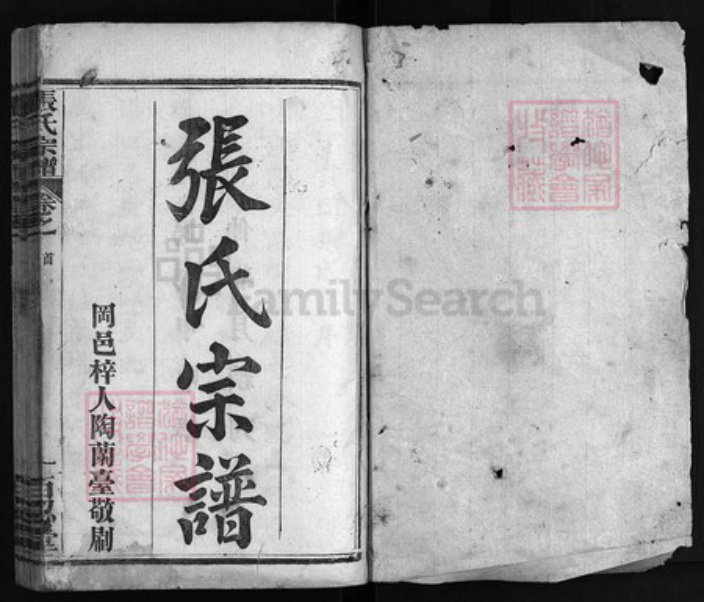 張氏宗譜
岡邑梓人陶蘭臺敬刷
張氏宗譜
卷之
首
百忍堂
FamilySearch